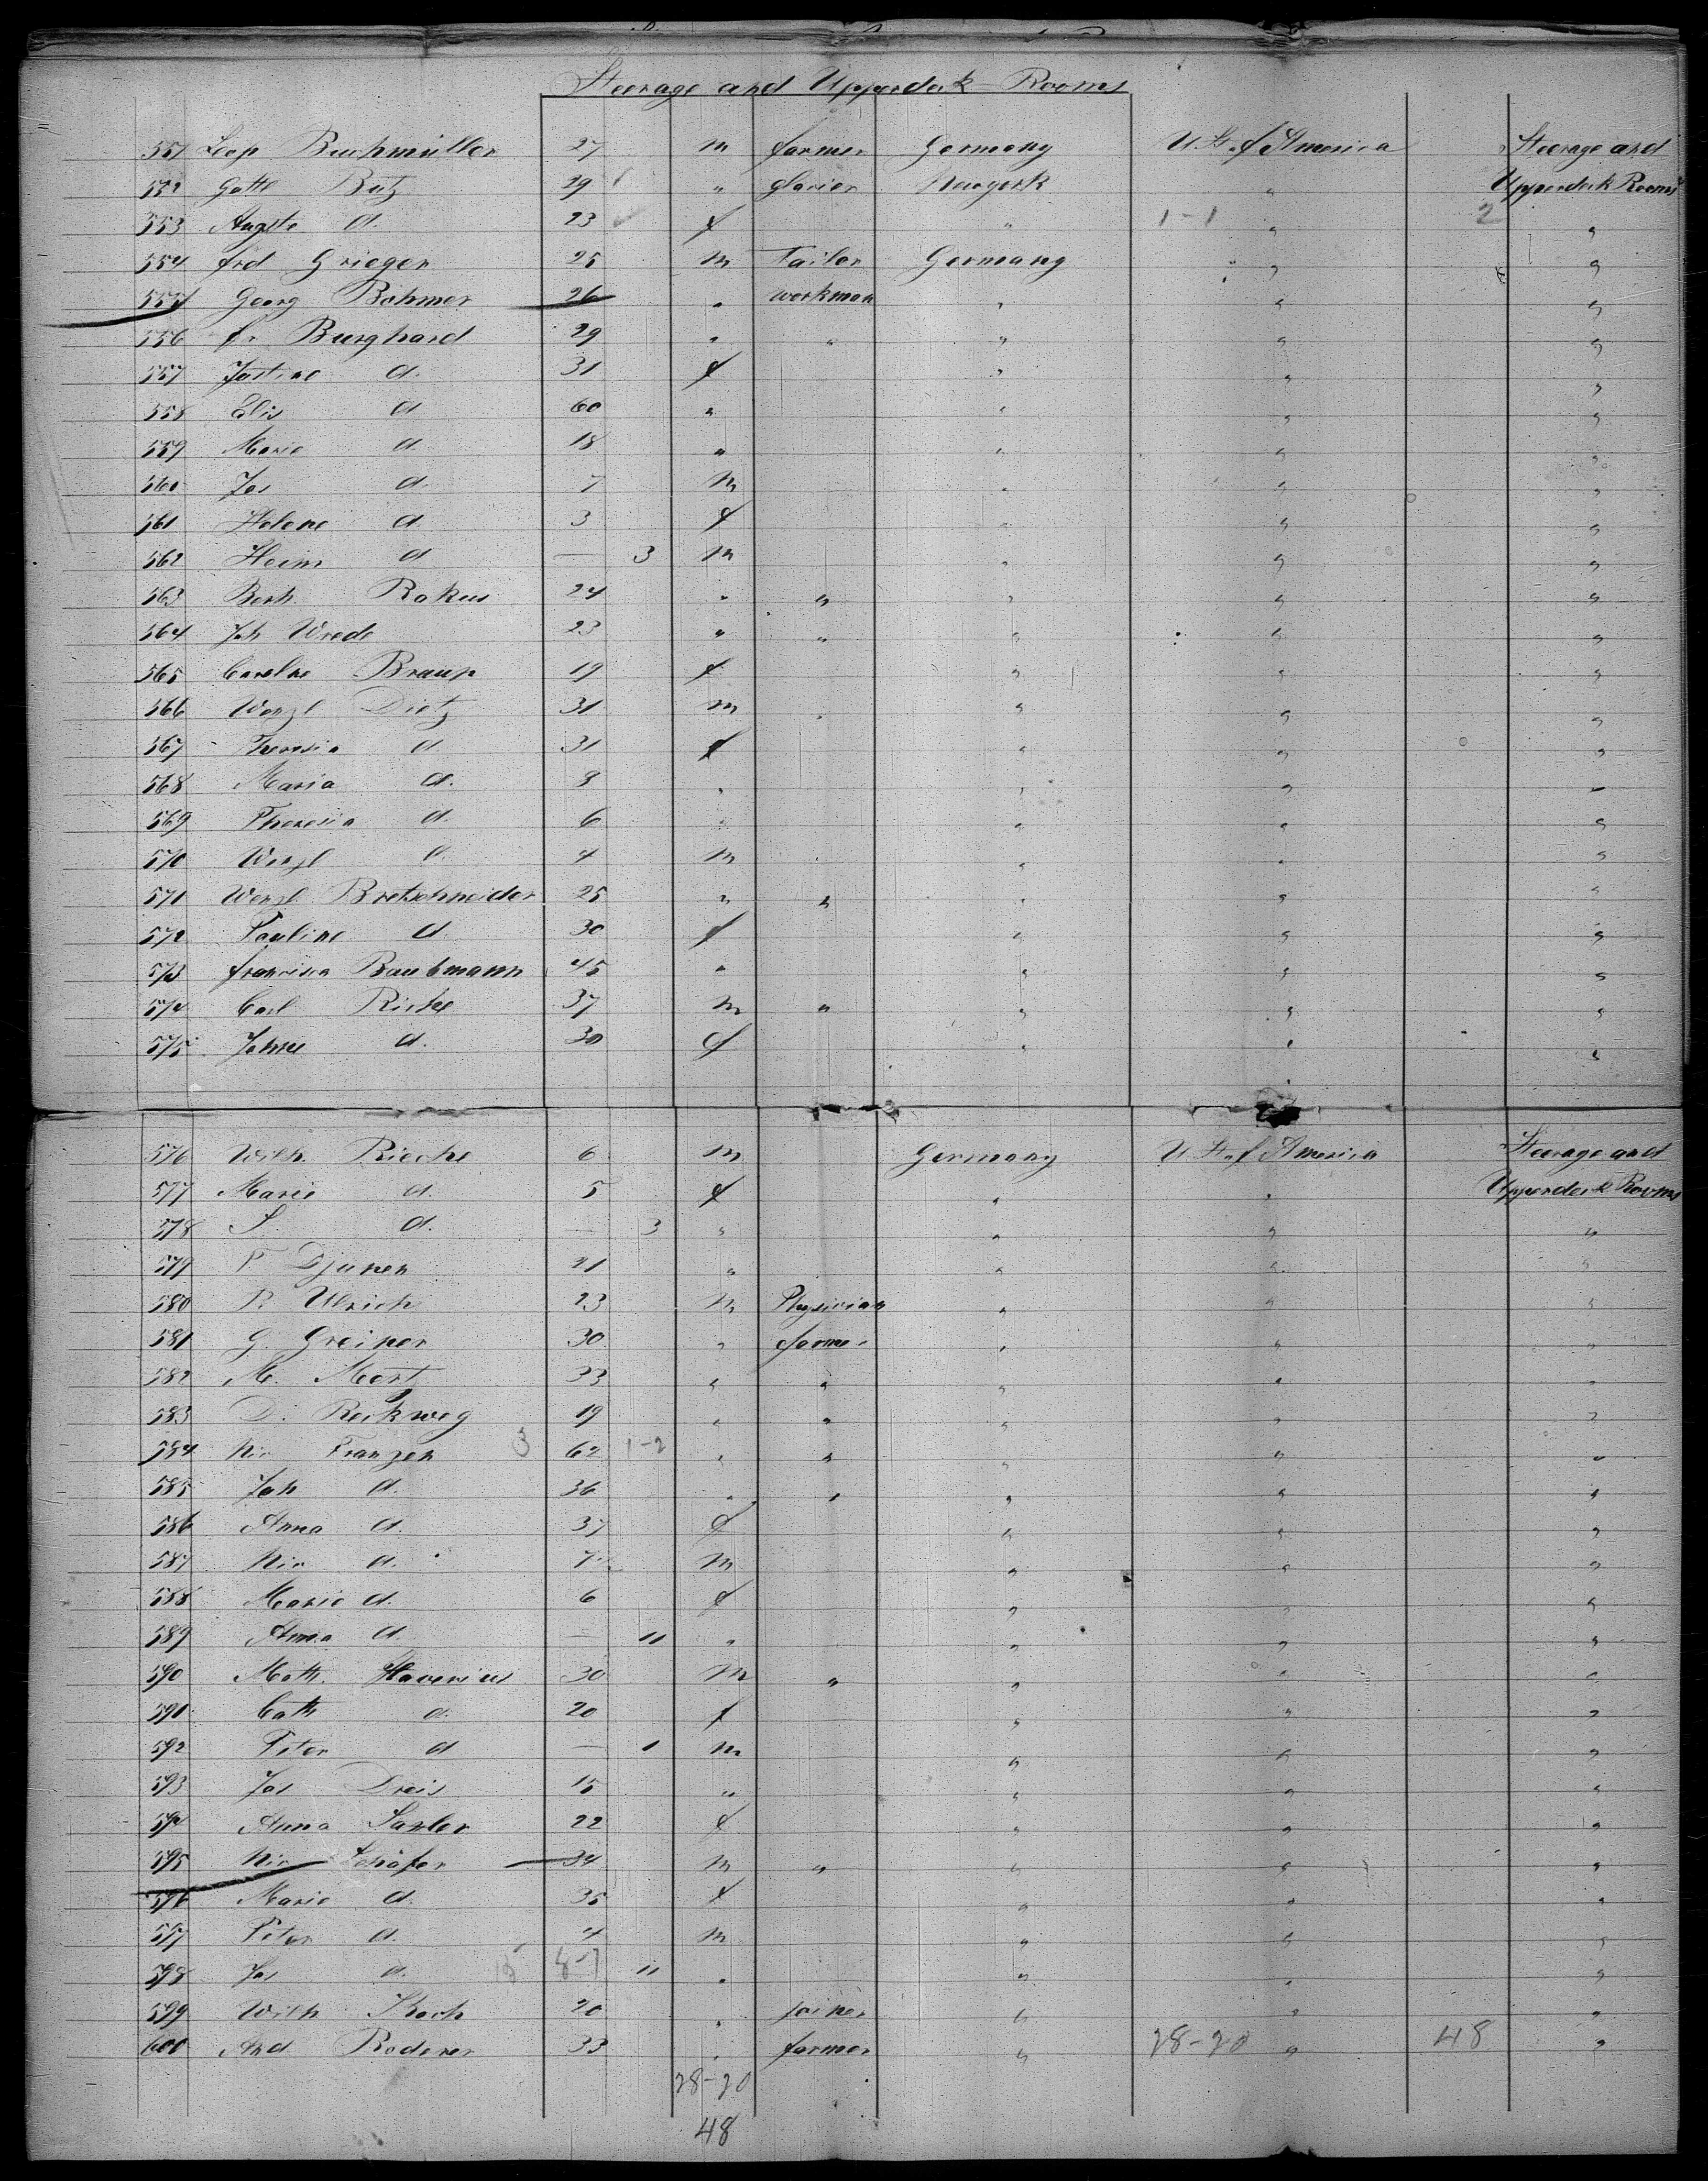 Steerage and Upperdeck Rooms
551 Leop Buchmüller 27 m farmer Germany U. St. of America Steerage and
552 Gottl Butz 29 " glacier Newyork " Upperdeck Rooms
553 Augste d. 23 f " 1-1 " 2 "
554 frd Grieger 25 m Tailor Germany " "
555 Georg Böhmer 26 " workman " " "
556 fr Burghard 29 " " " " "
557 Justine d. 31 f " " "
558 Elis d 60 " " " "
559 Marie d. 18 " " " "
560 Jos d. 7 m " " "
561 Helene d. 3 f " " "
562 Heinr d — 3 m " " "
563 Berh. Rokus 24 " " " " "
564 Joh Wrede 23 " " " " "
565 Carolne Braun 19 f " " "
566 Wenzl Dietz 31 m " " " "
567 Theresia d 31 f " " "
568 Maria d. 8 " " " "
569 Theresia d. 6 " " " "
570 Wenzl d. 4 m " " "
571 Wenzl Bretschneider 25 " " " " "
572 Pauline d 30 f " " "
573 francisca Baubmann 45 " " " "
574 Carl Riche 37 m " " " "
575 d. 30 f " " "
576 Wilh. Rieche 6 m Germany U. St. of America Steerage and
577 Marie d. 5 f " " Upperdeck Rooms
578 S. d. — 3 " " " "
579 21 " " " "
580 R Ulrich 23 m Physician " " "
581 G. Greiner 30 " farmer " " "
582 M. Mertz 33 " " " " "
583 D. Reckweg 19 " " " " "
584 Nic Franzen 3 62 1-2 " " " " "
585 Joh d. 36 " " " " "
586 Anna d. 37 f " " "
587 Nic d. 7 m " " "
588 Marie d. 6 f " " "
589 Anna d. — 11 " " " "
590 Math. Haverius 30 m " " " "
591 Cath d. 20 f " " "
592 Peter d — 1 m " " "
593 Jos Dreis 15 " " " "
594 Anna Saxler 22 f " " "
595 Nic Schäfer 34 m " " " "
596 Marie d. 35 f " " "
597 Peter d. 4 m " " "
598 Jos d. 15 8-7 11 " " " "
599 Wilh Koch 20 " joiner " " "
600 And Roderer 33 " farmer " 28-20 " 48 "
28-20
48